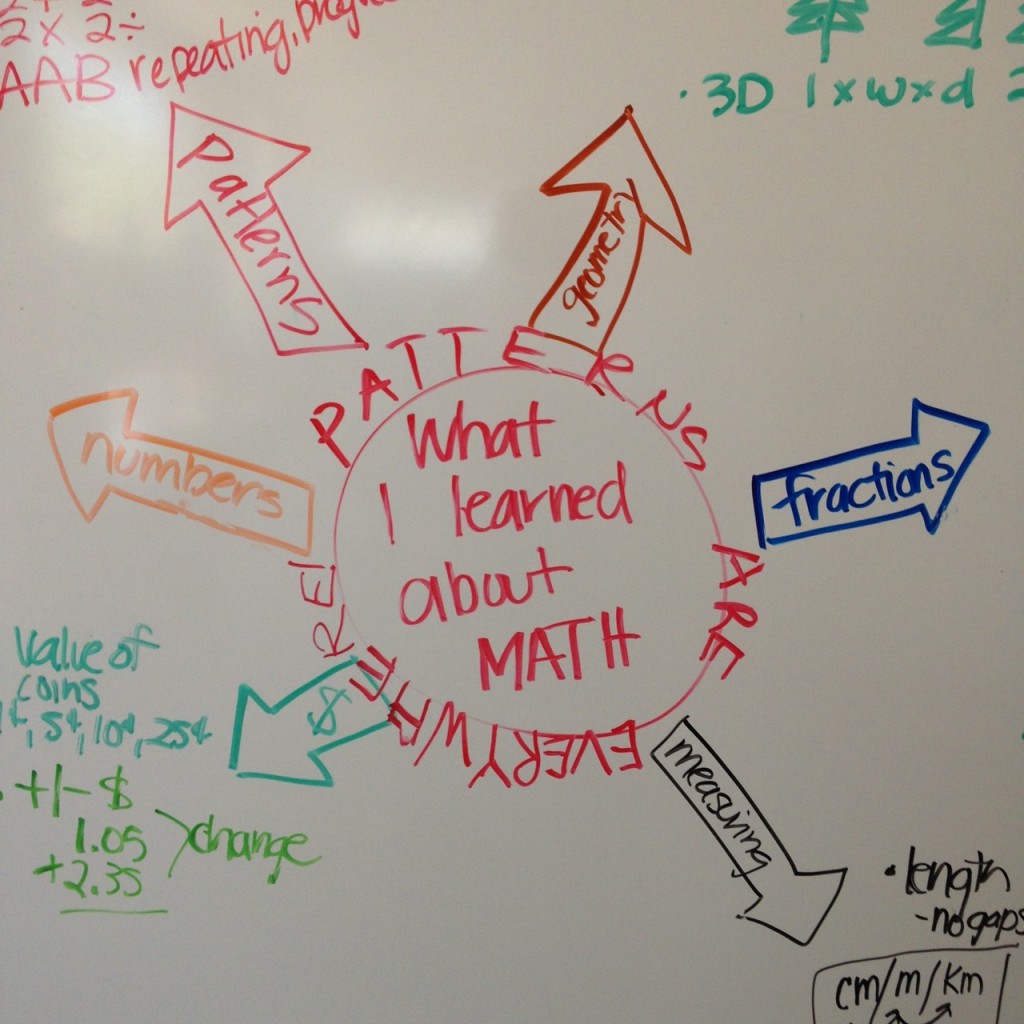 2x 2÷
AAB repeating,
3D l x w x d
Patterns
geometry
PATTERNS ARE EVERYWHERE!
What
I learned
about
MATH
numbers
fractions
$
measuring
value of
coins
1¢, 5¢, 10¢, 25¢
+/- $
1.05
+2.35
change
• length
- no gaps
cm/m/km